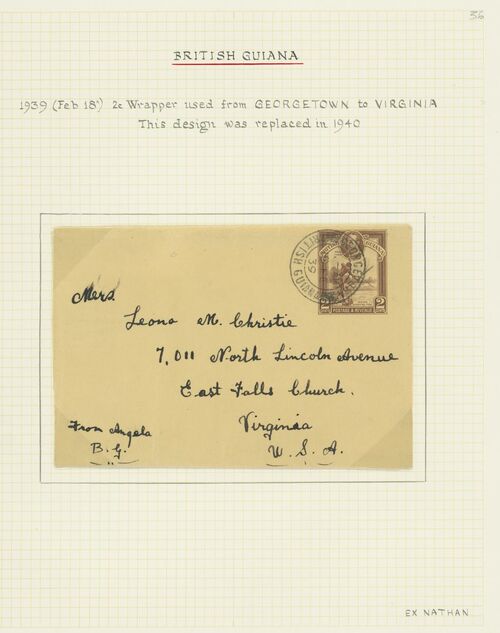 36
BRITISH GUIANA
1939 (Feb 18th) 2c Wrapper used from GEORGETOWN to VIRGINIA
This design was replaced in 1940
GEORGETOWN BRITISH GUIANA
39
2 POSTAGE & REVENUE 2
Mers
Leona M. Christie
7,011 North Lincoln Avenue
East Falls Church.
Virginia
U. S. A.
From Angela
B. G.
EX NATHAN